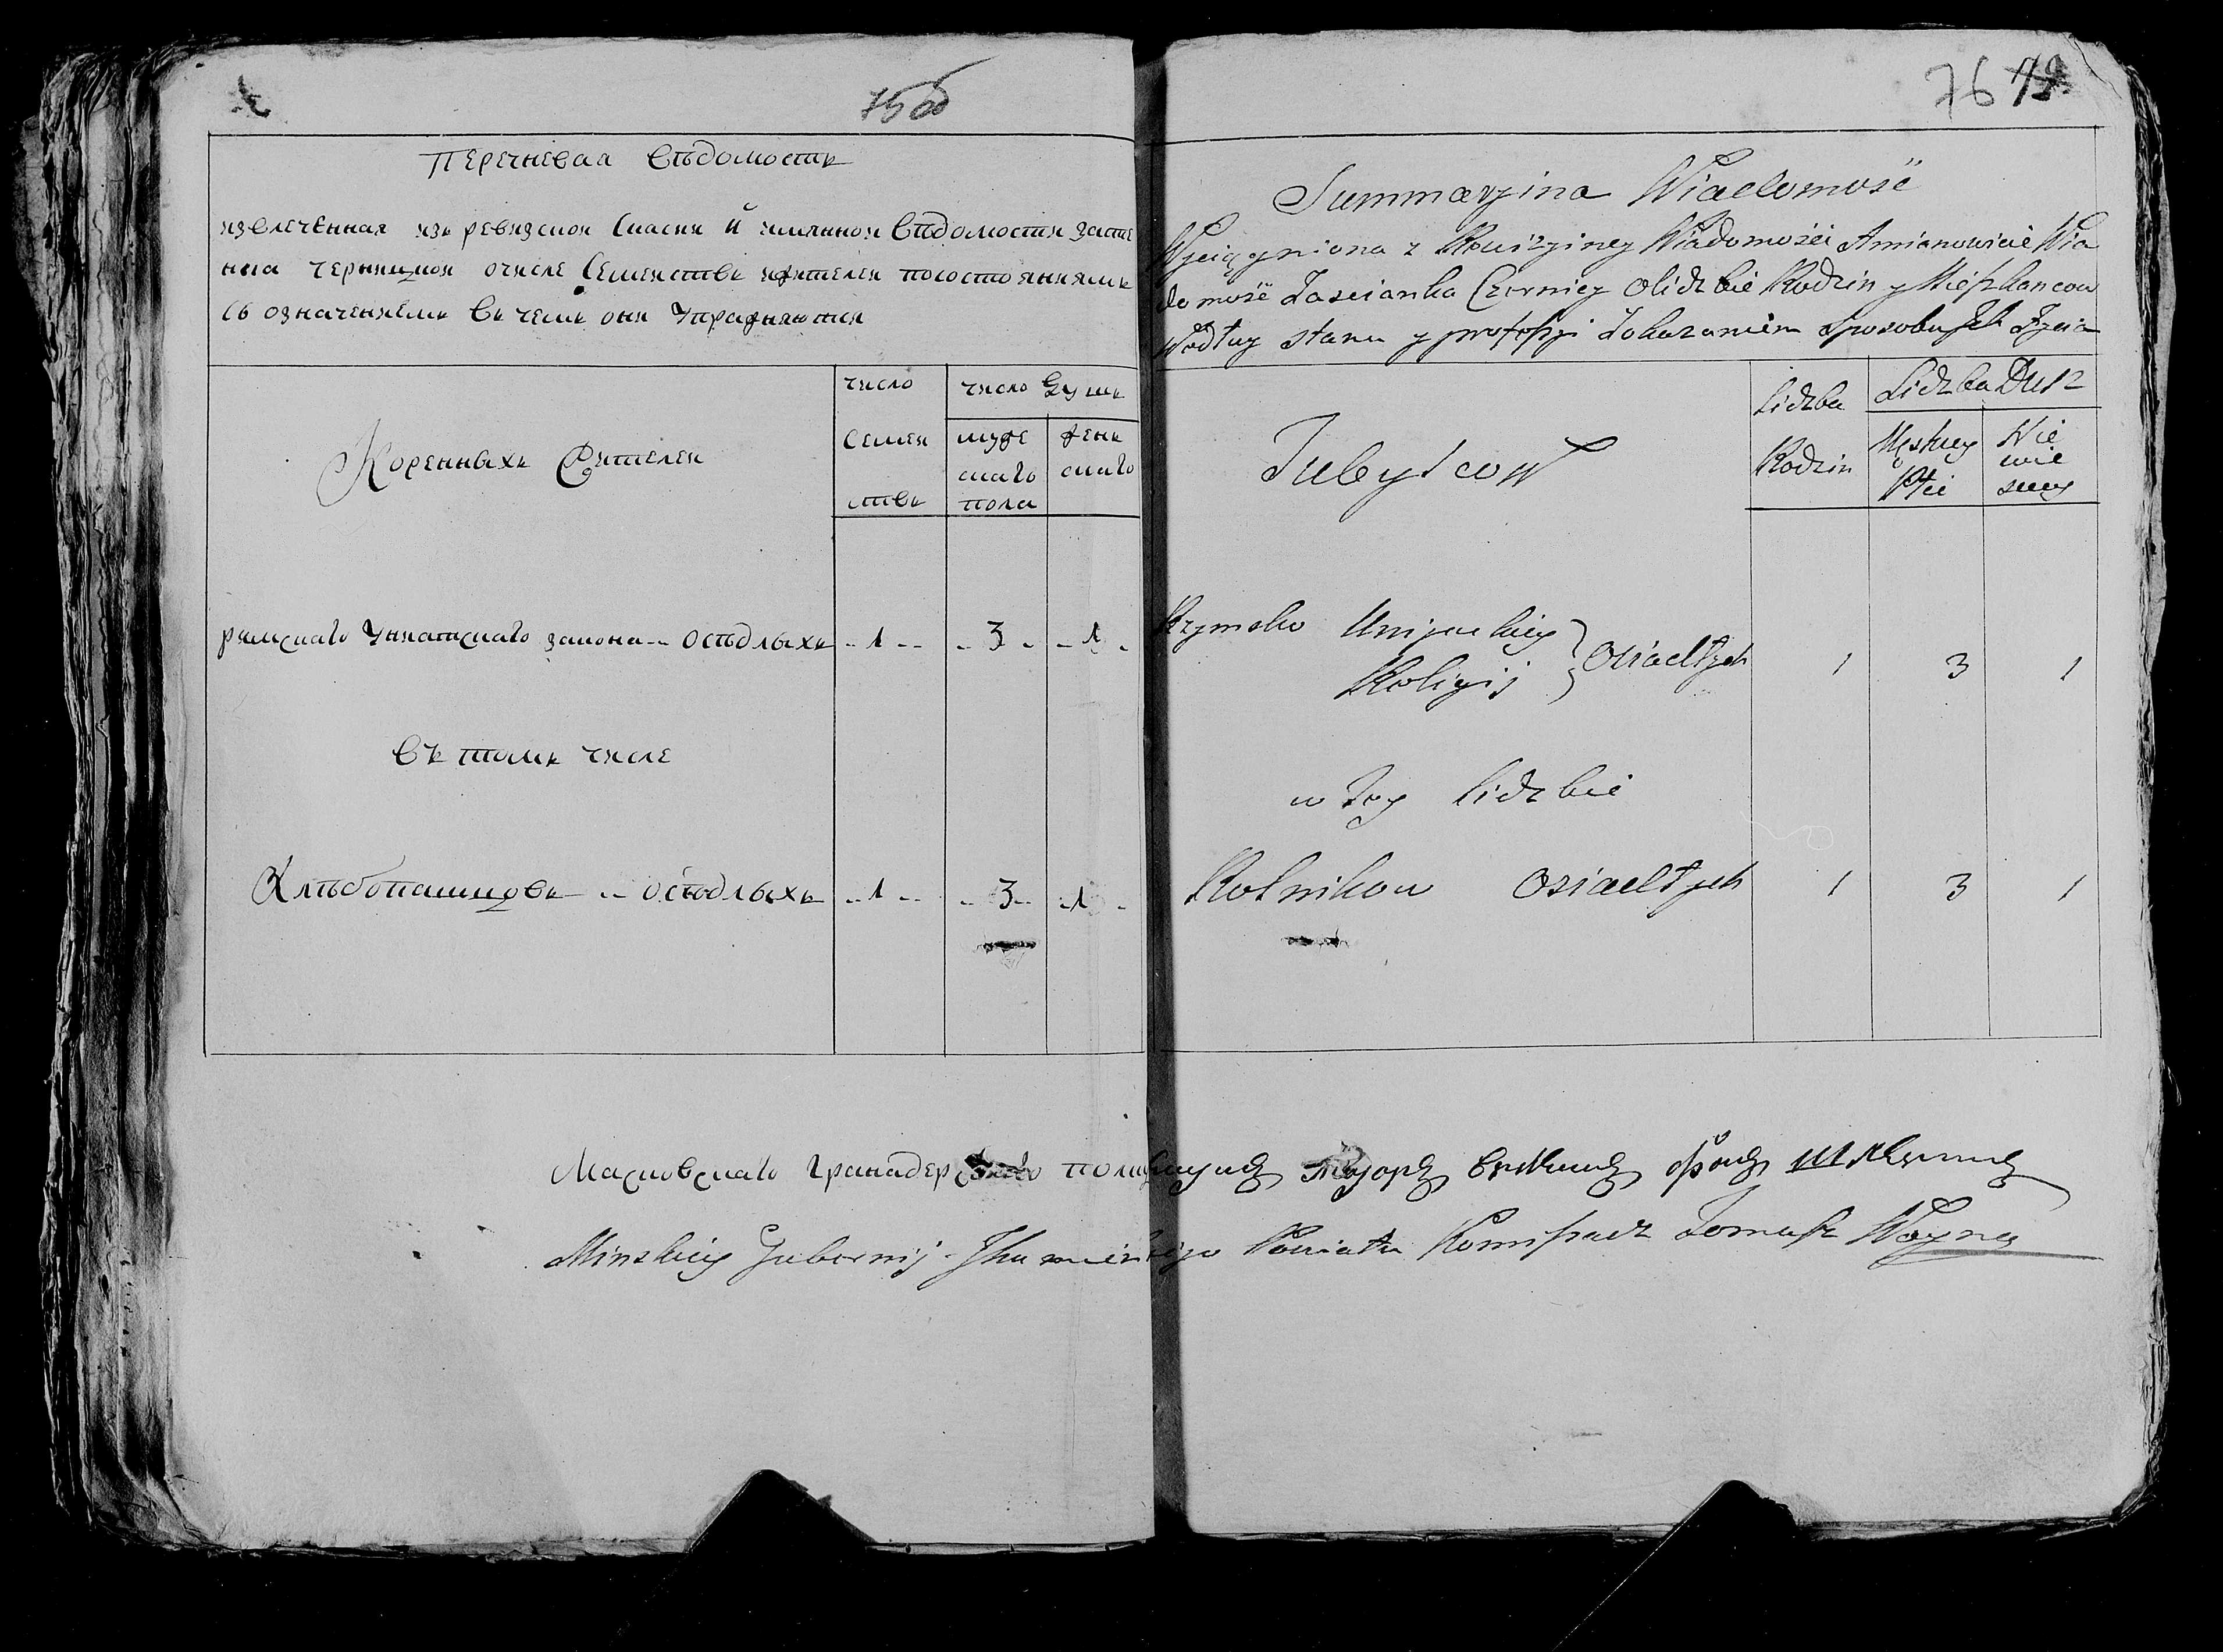 75об
Перечневая Вѣдомость
извлеченная изъ ревизской Сказки й имянной Вѣдомости засте
нка Черницкой очисле Семействъ ижителей посостояниямъ
Съ означениемъ Въ чемъ они Упражняются
Коренныхъ Жителей
число Семей ствъ
число Душъ
муже скаго пола
женъ скаго
римскаго Униатскаго закона -- Осѣдлыхъ -- 1 -- - 3 - - 1 -
въ томъ числе
Хлѣбопашцовъ -- осѣдлыхъ -- 1 -- -- 3 -- - 1 -
76
Summaryina Wiadomość
Wyciągniona z Rewizyiney Wiadomości Amianowicie Wia
domość Zascianka Czernicy Olidzbie Rodzin y Mieszkancow
Według stanu y proffessyi Zokazaniem Sposobu Ich Życia
Tubylcow
Lidzba Rodzin
Lidzba Dusz
Męskiey Płci
Nie wie sciey
Rzymsko Unijackiey
Religij } Osiadłych 1 3 1
w Tey lidzbie
Rolnikow Osiadłych 1 3 1
Масковскаго Гранадерскаго полка Маіоръ фонъ
Minskiey Gubernij Ihumenskiego Powiatu Tomasz Woyna